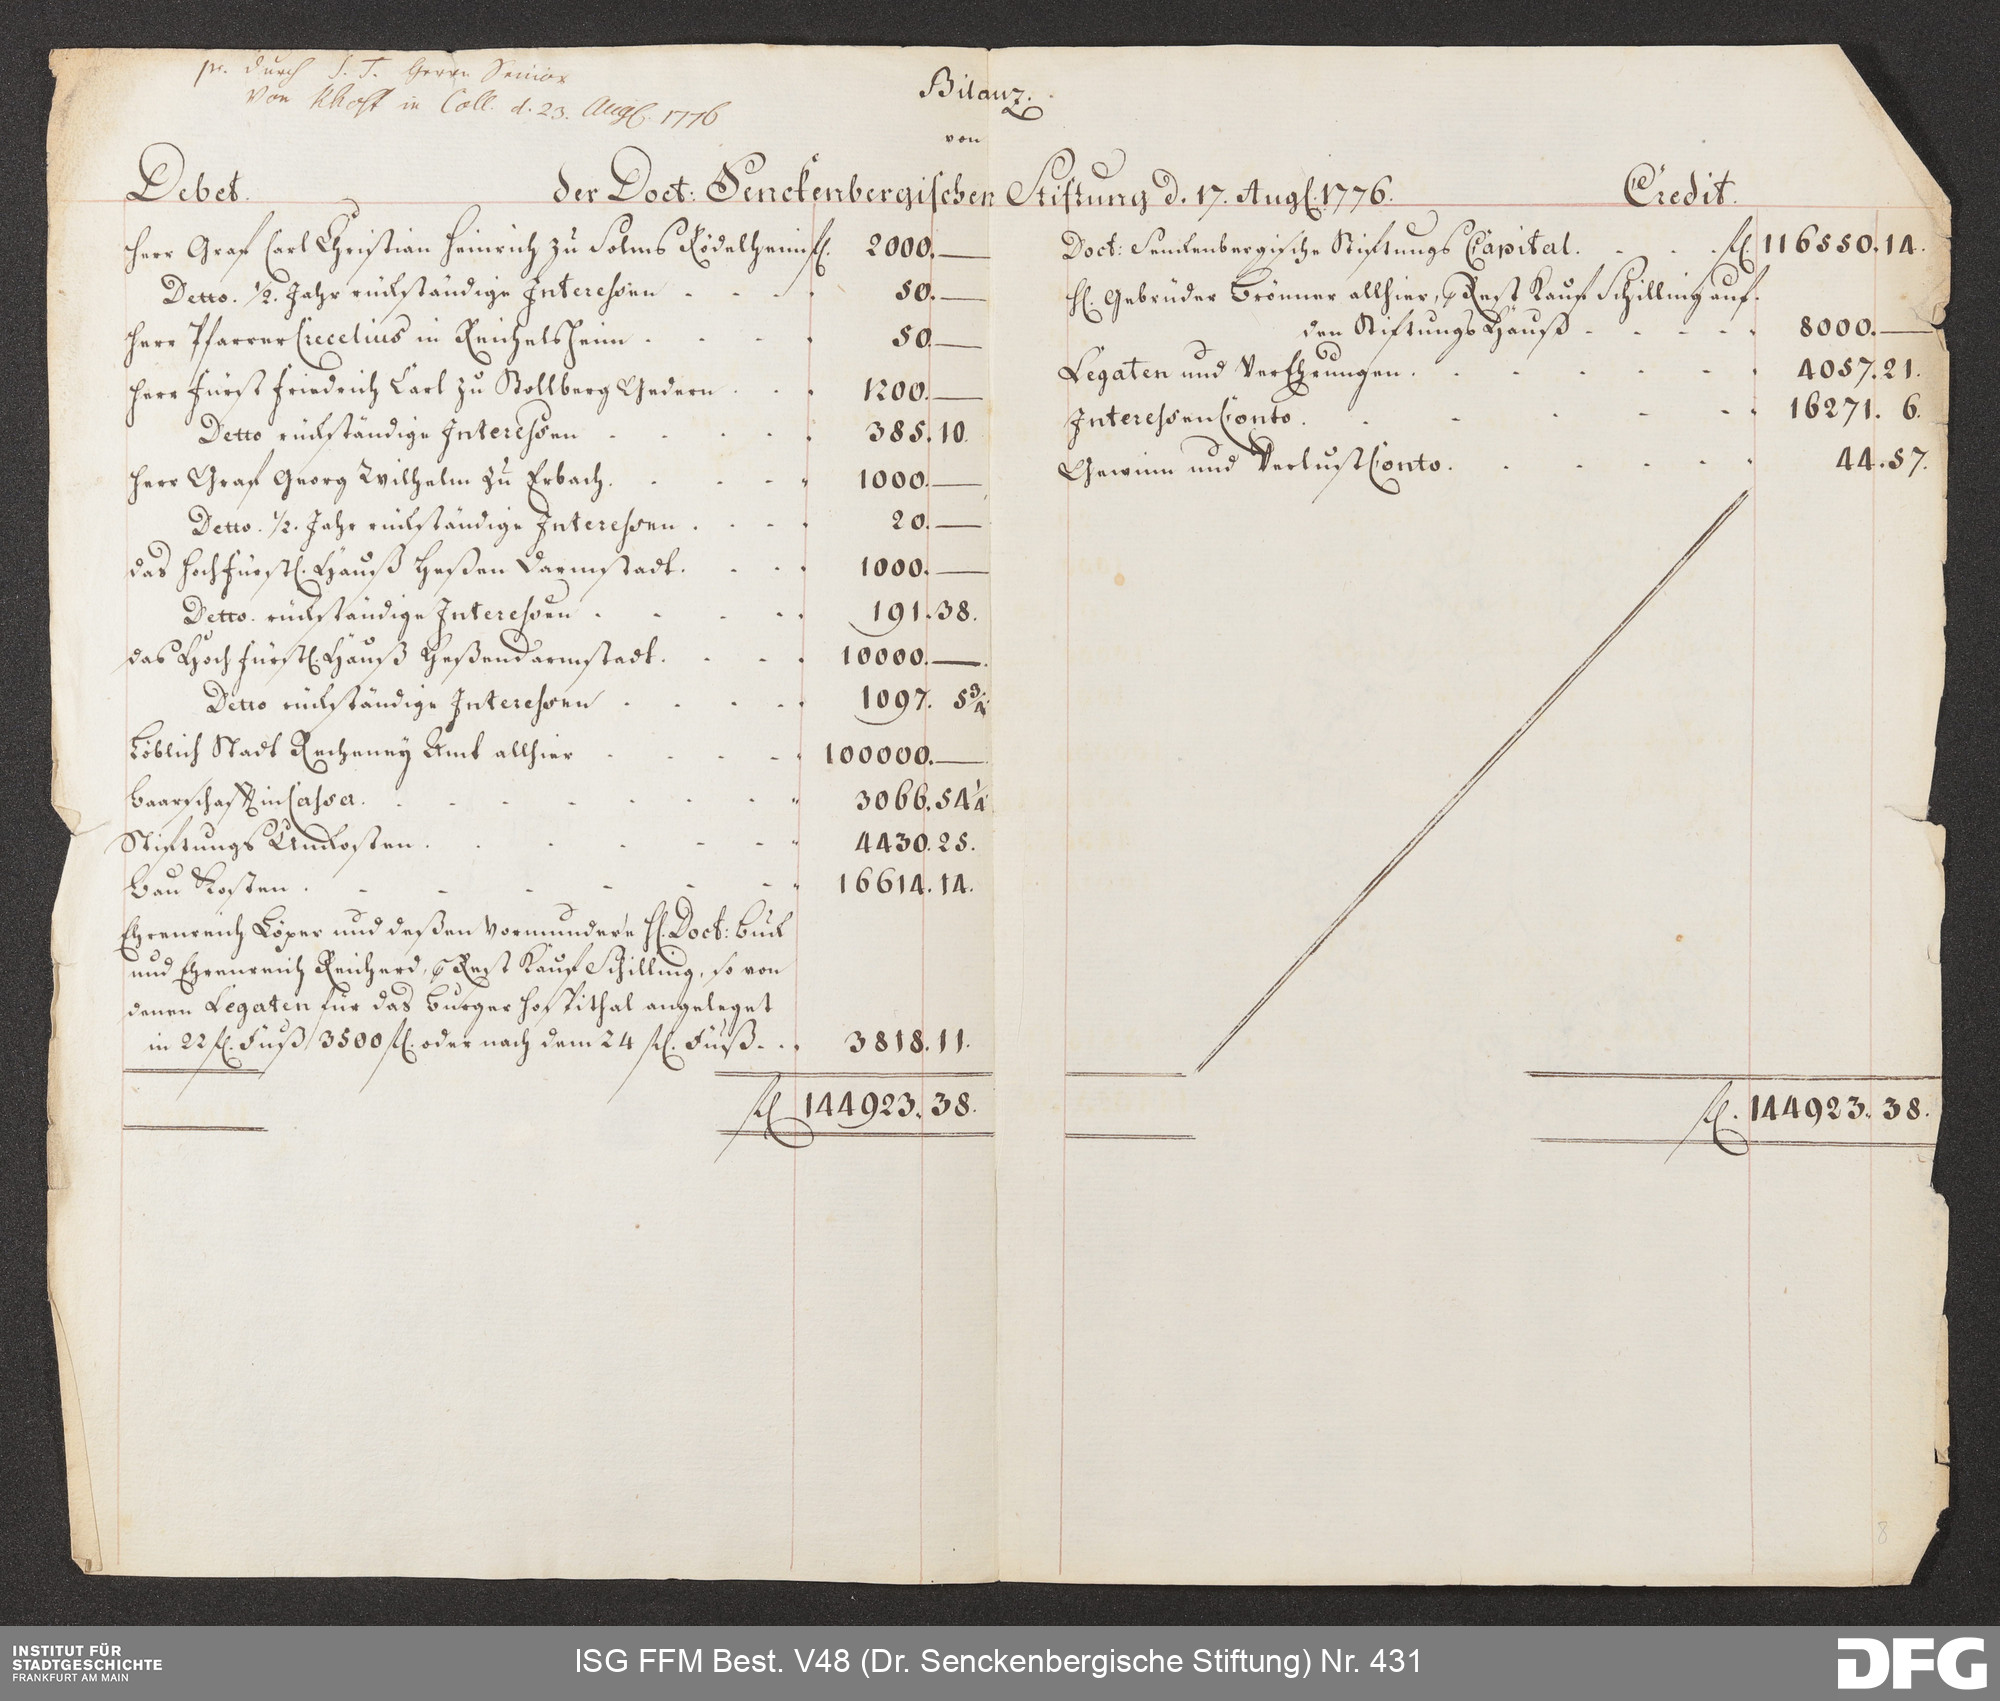 pr. durch S. T. Herrn Senior
von in Coll. d. 23. Augl. 1776
Bilanz.
von
Debet.
der Doct: Senckenbergischen Stiftung d. 17. Augl. 1776.
Credit.
Herr Graf Carl Christian Heinrich zu Solms Rödelheim fl. 2000. —
Detto. 1/2. Jahr rückständige Interessen 50. —
Herr Pfarrer Crecelius in Reichelsheim 50. —
Herr Fürst Friedrich Carl zu Stollberg Gedern 1200. —
Detto rückständige Interessen 385. 10.
Herr Graf Georg Wilhelm zu Erbach. 1000. —
Detto. 1/2. Jahr rückständige Interessen. 20. —
das Hochfürstl. Hauß Heßen Darmstadt. 1000. —
Detto. rückständige Interessen 191. 38.
das Hochfürstl. Hauß Heßendarmstadt. 10000. —
Detto rückständige Interessen 1097. 5 3/4
Löblich Stadt Recheney Amt allhier 100000. —
Baarschafft in Cassa. 3066. 54 1/4
Stiftungs Unkosten. 4430. 25.
Bau Kosten. 16614. 14.
Ehrenreich Löper und deßen Vormundere H. Doct: Buck
und Ehrenreich Reicherd, Rest Kauf Schilling, so von
denen Legaten für das Burger Hospithal angeleget
in 22 fl. Fuß / 3500 fl. oder nach dem 24 fl. Fuß. 3818. 11.
fl 144923. 38.
Doct: Senckenbergische Stiftungs Capital. fl. 116550. 14.
H. Gebrüder Brönner allhier, Rest Kauf Schilling auf
den Stiftungs Hauß 8000. —
Legaten und Verehrungen. 4057. 21.
Interessen Conto. 16271. 6.
Gewinn und Verlust Conto. 44. 57.
fl. 144923. 38.
8
INSTITUT FÜR
STADTGESCHICHTE
FRANKFURT AM MAIN
ISG FFM Best. V48 (Dr. Senckenbergische Stiftung) Nr. 431
DFG